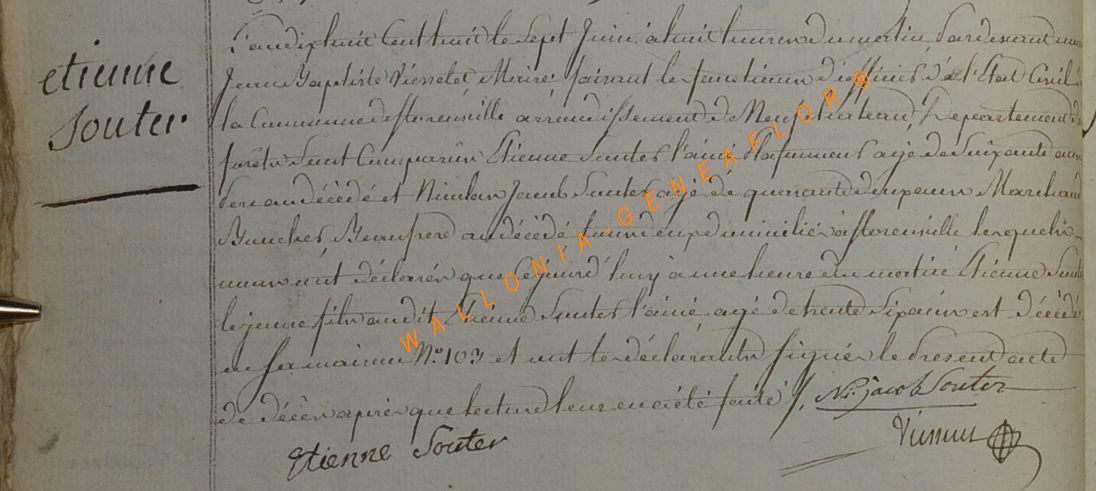 etienne
Souter
L'an dix huit Cent huit le Sept Juin à huit heures du matin, Pardevant nous
Jean Baptiste Maire faisant les fonctions d'officier de l'Etat Civil de
la Commune de florenville arrondissement de Neufchateau, Departement de
forêts Sont Comparus Etienne Souter l'ainé agé de Soixante ans
Pere au décédé et Nicolas Jacob Souter agé de quarante deux ans Marchand
Boucher Beaufrere au décédé tous deux domiciliés à florenville lesquels
nous ont déclarés que ce jourd'huy à une heure du matin Etienne Souter
le jeune fils audit Etienne Souter l'ainé agé de trente Six ans est décédé
en sa maison N.º 103 et ont les déclarants signés le Present acte
de décès après que lecture leur en a été faite /.
Ni: jacob Souter
Etienne Souter
WALLONIA-GENEAFLORE